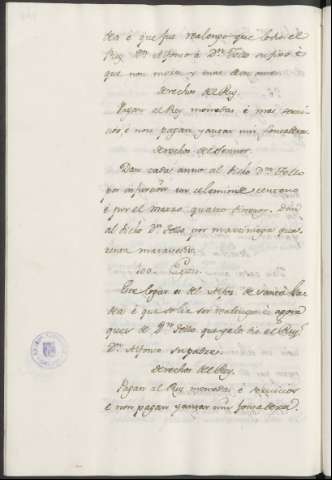 dea é que fue realengo que lo dio el
Rey Dn. Alfonso á Dn. Tello su fijo é
que non
derechos del Rey.
Pagan al Rey monedas é mas servi-
cios é non pagan yantar nin fonsadera.
derechos del Señor.
Dan cada anno al dicho Dn. Tello
por infurcion un celemin de centeno
é por el marzo quatro dineros. dan
al dicho Dn. Tello por martiniega qua-
renta maravedis.
Este logar es del
dea é que solia ser realengo é agora
que es de Dn. Tello que gelo dio el Rey
Dn. Alfonso su padre.
derechos del Rey.
Pagan al Rey monedas é servicios
é non pagan yantar nin fonsadera.